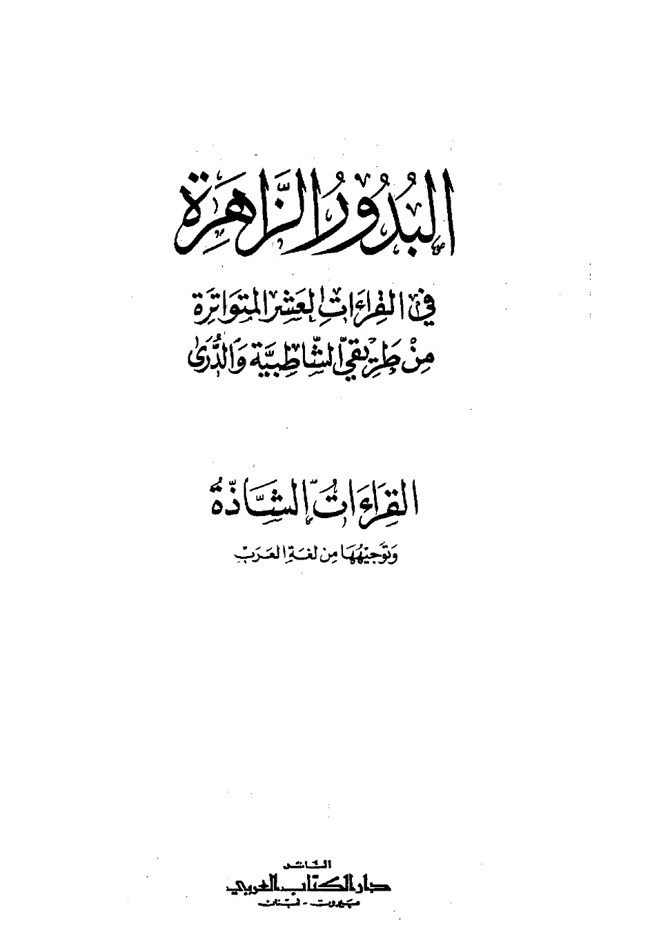 البُدُورُ الزَّاهِرَة
فِي القِرَاءَاتِ العَشْرِ المُتَوَاتِرَة
مِنْ طَرِيقَيِ الشَّاطِبِيَّة وَالدُّرَى
القِرَاءَاتُ الشَّاذَّةُ
وَتَوْجِيْهُهَا مِن لُغَةِ العَرَبِ
الناشر
دار الكتاب العربي
بيروت - لبنان